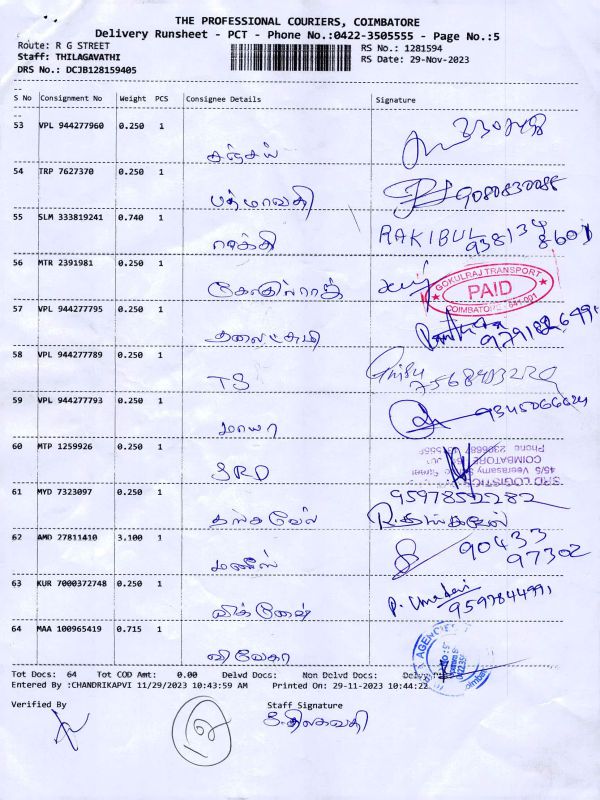 THE PROFESSIONAL COURIERS, COIMBATORE
Delivery Runsheet - PCT - Phone No.:0422-3505555 - Page No.:5
Route: R G STREET
Staff: THILAGAVATHI
DRS No.: DCJB128159405
RS No.: 1281594
RS Date: 29-Nov-2023
S No Consignment No Weight PCS Consignee Details Signature
53 VPL 944277960 0.250 1
சஞ்சய்
54 TRP 7627370 0.250 1 9080830088
பத்மாவதி
55 SLM 333819241 0.740 1 RAKIBUL
சக்தி
56 MTR 2391981 0.250 1
கோகுல்ராஜ்
GOKULRAJ TRANSPORT
PAID
COIMBATORE - 641-001
57 VPL 944277795 0.250 1
58 VPL 944277789 0.250 1
TS
59 VPL 944277793 0.250 1
மாயா
60 MTP 1259926 0.250 1
SRD
SRD LOGISTIC
COIMBATORE
61 MYD 7323097 0.250 1 9597852282
தங்கவேல்
62 AMD 27811410 3.100 1 90433
97302
மணீஸ்
63 KUR 7000372748 0.250 1 P. Uma devi
விக்னேஷ்
64 MAA 100965419 0.715 1
விவேகா
Tot Docs: 64 Tot COD Amt: 0.00 Delvd Docs: Non Delvd Docs:
Entered By :CHANDRIKAPVI 11/29/2023 10:43:59 AM Printed On: 29-11-2023 10:44:22
Verified By Staff Signature
S.திலகவதி